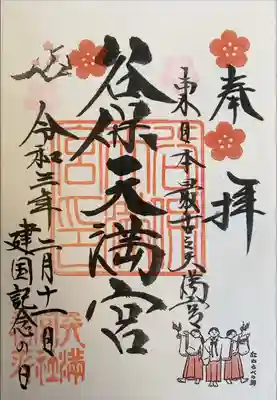 奉拝
東日本最古之天満宮
谷保天満宮
令和三年二月十一日
建国記念の日